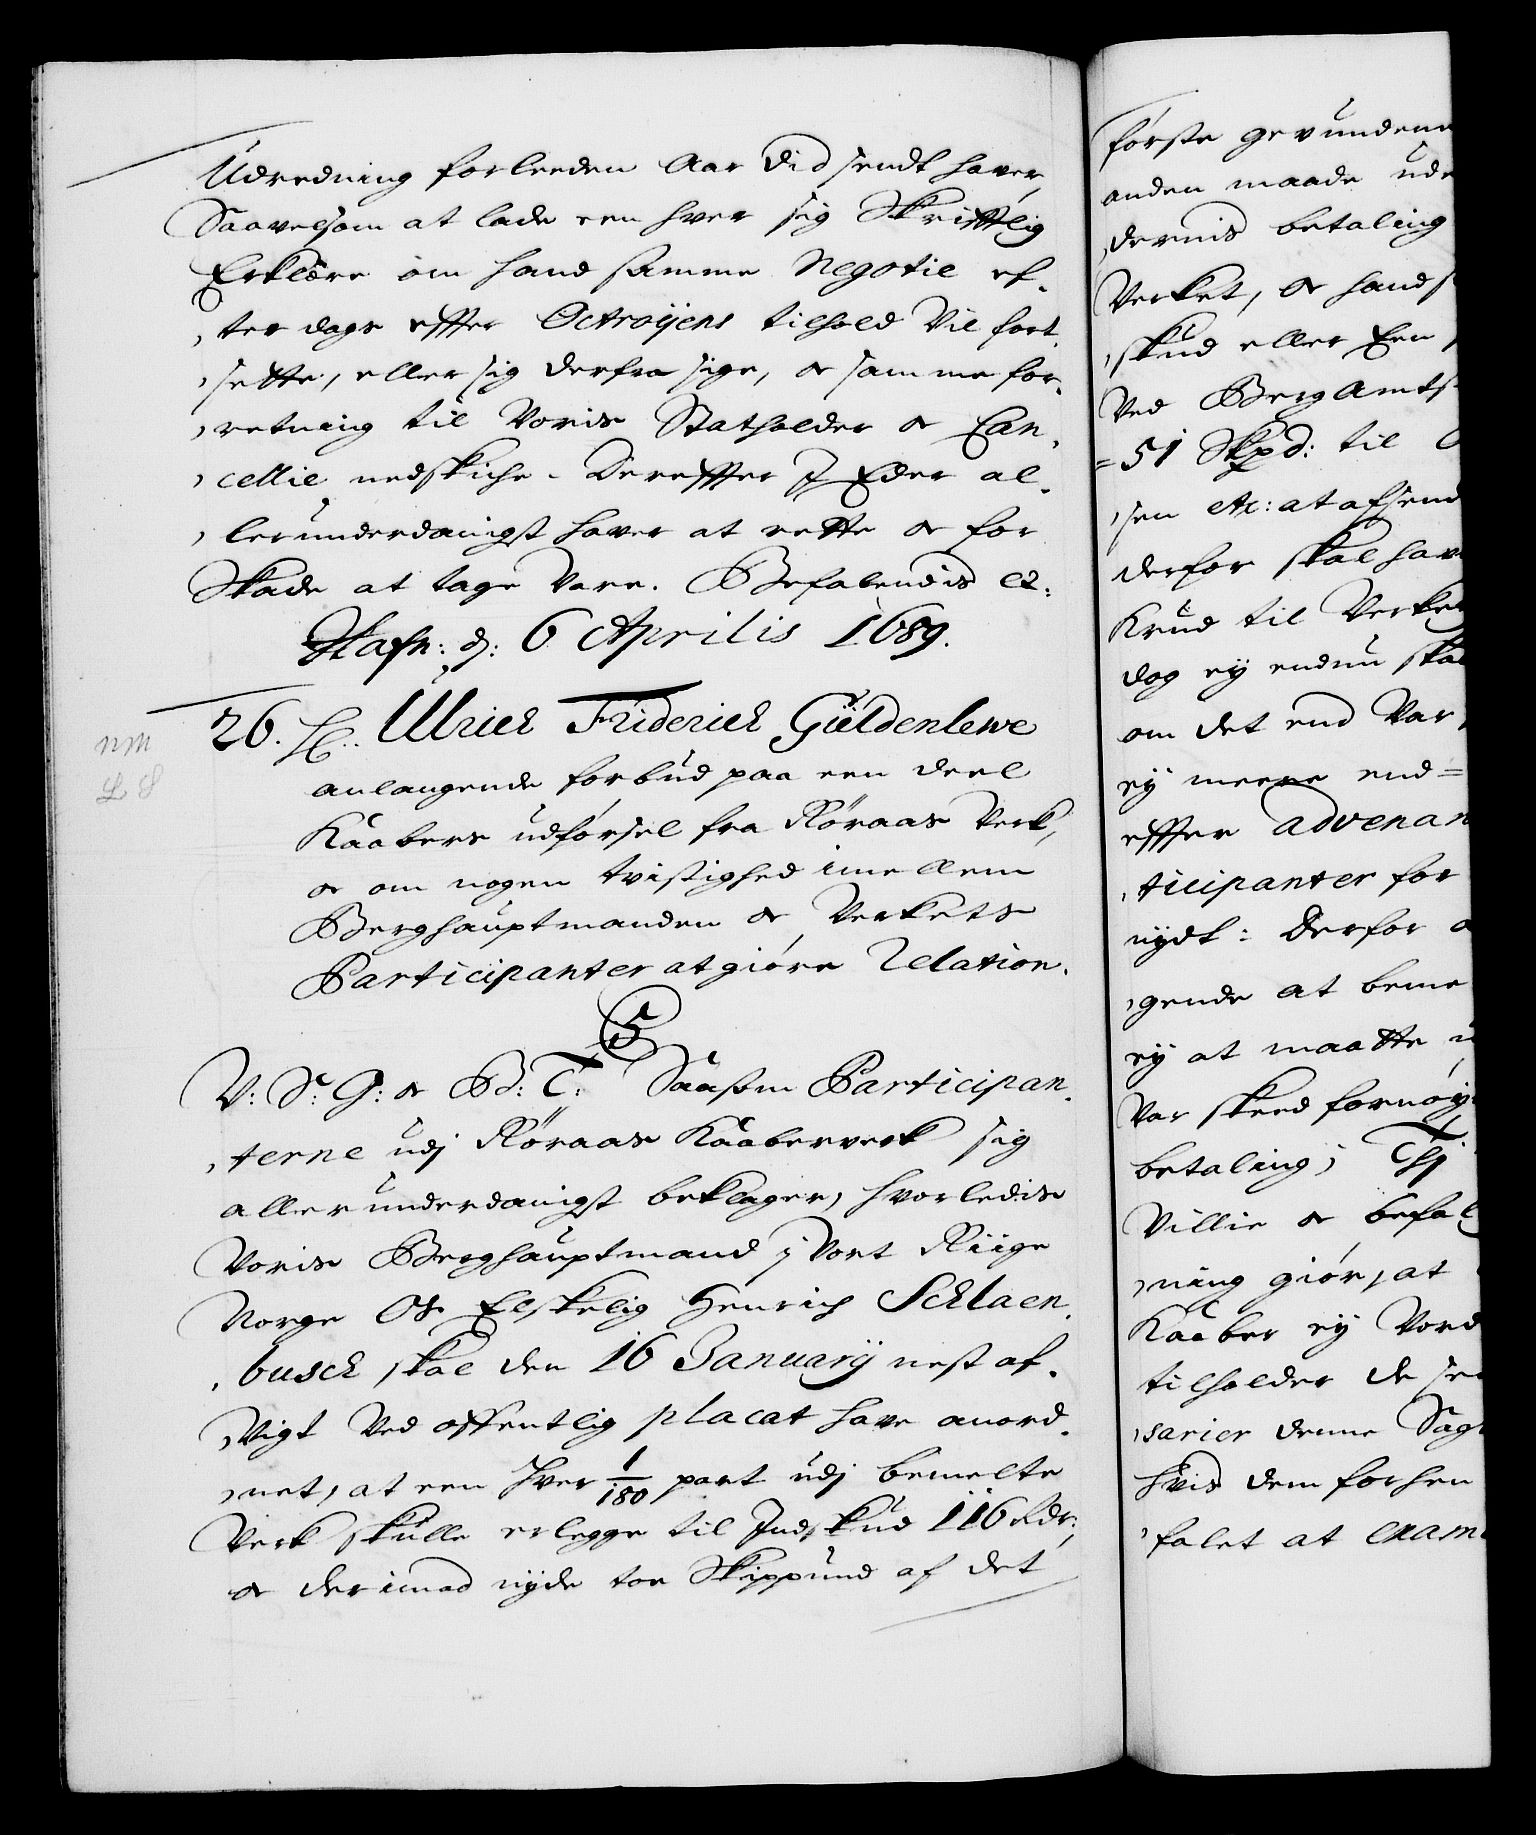 Udredning forleeden Aar did sendt haver,
Saavelsom at lade een hver sig Skrifftlig
Erklære om hand samme Negotie ef-
ter dags effter Octroÿens tilhold vil fort-
sette, eller sig derfra sige, og samme for-
retning til Voris Statholder og Can-
cellie nedskiche. Dereffter I Eder al-
lerunderdanigst haver at rette og for
Skade at tage vare. Befalendis etc:
Hafn: d: 6 Aprilis 1689.
26. H:. Ulrich Friderich Güldenlewe
anlangende forbud paa een deel
Kaabers udførsel fra Røraas Verk,
og om nogen tvistighed imellem
Berghauptmanden og Verkets
Participanter at giøre Relation.
C5
V: S: G: og B: T: Saasom Participan-
terne udj Røraas Kaaberverk sig
allerunderdanigst beklager, hvorledis
Voris Berghauptmand j Vort Riige
Norge Os Elskelig Henrich Schlaen-
busch skal den 16 Januarij nest af-
vigt ved offentlig placat have anord-
net, at een hver 1/180 part udj bemelte
Verk skulle erlegge til Indskud 116 Rdr:,
og derimod nyde toe Skippund af det
første gevundene
anden maade ude
dernis betaling
Verket, og hand s
skud eller Een
ved BergAmts-
= 51 Skpd: til
sen etc: at afsend
derfor skal hav
Krud til Verke
dog ey endnu ska
om det end var
ey meere end=
effter advenan
ticipanter for
nydt: Derfor
gende at beme
ey at maatte
var skeed fornøy
betaling; Thj
Villie og befal
ning giør, at
Kaaber ey vord
tilholder de se
sarier denne Sag
hvis dem forhen
falet at exam